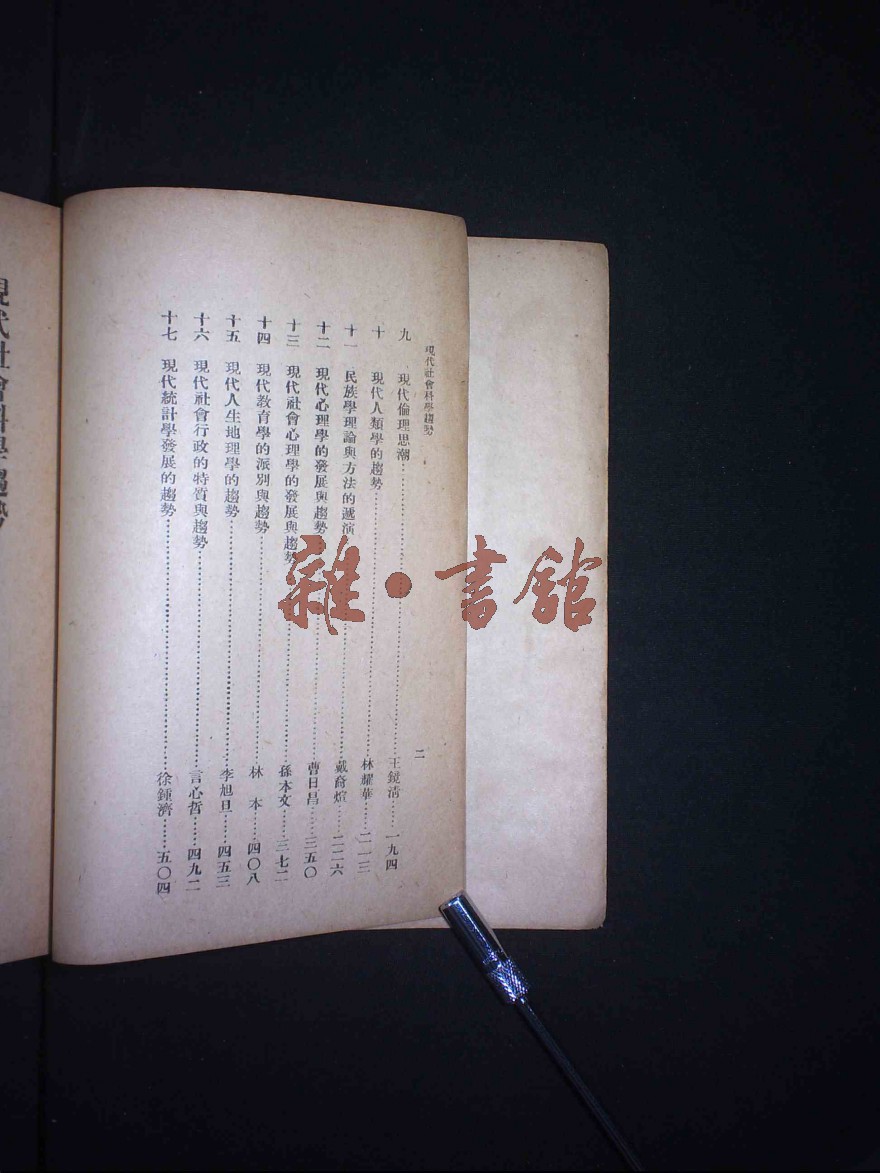 現代社會科學趨勢
二
九 現代倫理思潮……王鏡清……一九四
十 現代人類學的趨勢……林耀華……二一三
十一 民族學理論與方法的遞演……戴裔煊……二二六
十二 現代心理學的發展與趨勢……曹日昌……三五〇
十三 現代社會心理學的發展與趨勢……孫本文……三七二
十四 現代教育學的派別與趨勢……林 本……四〇八
十五 現代人生地理學的趨勢……李旭旦……四五三
十六 現代社會行政的特質與趨勢……言心哲……四九二
十七 現代統計學發展的趨勢……徐鍾濟……五〇四
現代社會科學趨勢
雜·書館